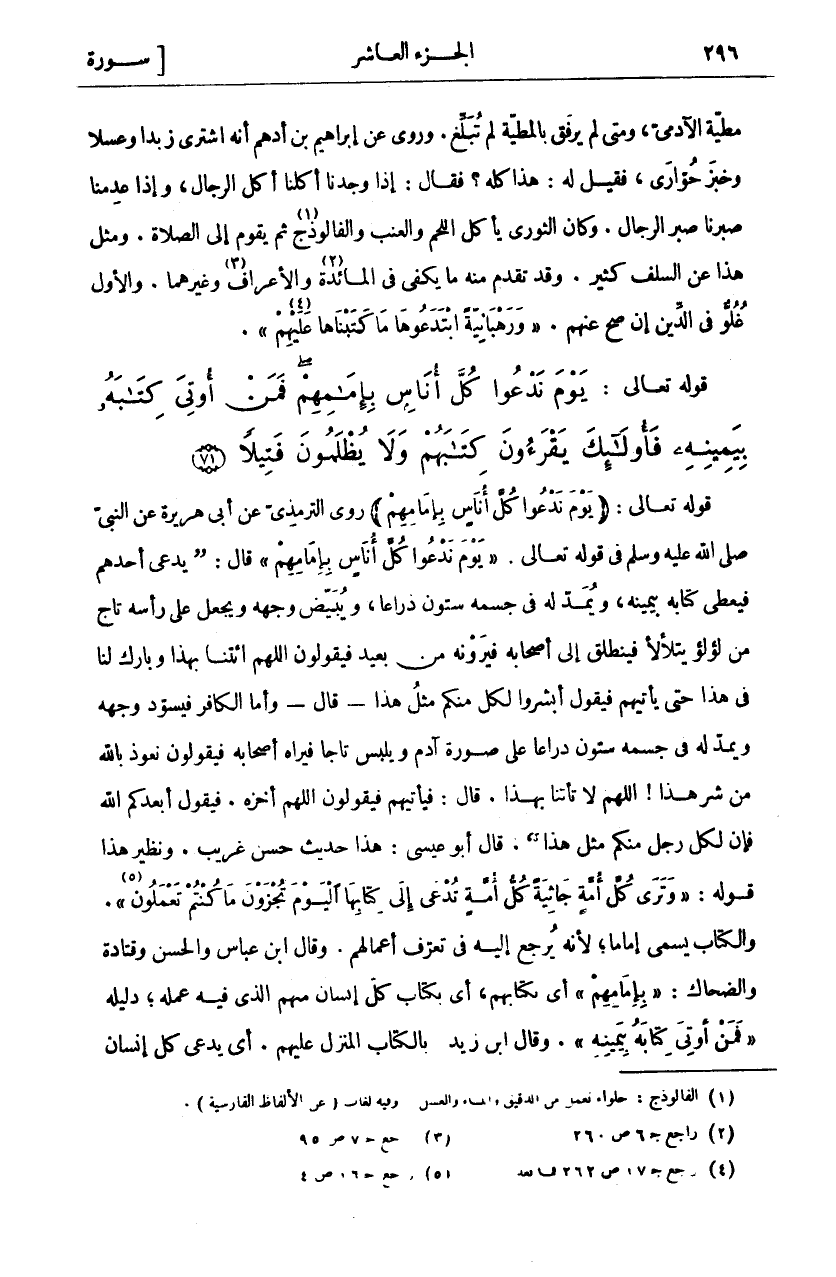 ٢٩٦ الجزء العاشر [ سورة
مطيّة الآدمىّ، ومتى لم يرفَق بالمطيّة لم تُبَلِّغ . وروى عن إبراهيم بن أدهم أنه اشترى زبدا وعسلا
وخبزَ حُوّارَى ، فقيل له : هذا كله ؟ فقال : إذا وجدنا أكلنا أكل الرجال ، وإذا عدِمنا
صبرنا صبر الرجال . وكان الثورى يأكل اللحم والعنب والفالوذج (١) ثم يقوم إلى الصلاة . ومثل
هذا عن السلف كثير . وقد تقدم منه ما يكفى فى المائدة (٢) والأعراف (٣) وغيرهما . والأول
غُلُوٌّ فى الدِّين إن صح عنهم . « وَرَهْبَانِيَّةً ابْتَدَعُوهَا مَا كَتَبْنَاهَا عَلَيْهِمْ (٤) » .
قوله تعالى : يَوْمَ نَدْعُوا كُلَّ أُنَاسٍ بِإِمَـٰمِهِمْ ۖ فَمَنْ أُوتِىَ كِتَـٰبَهُۥ
بِيَمِينِهِۦ فَأُولَـٰٓئِكَ يَقْرَءُونَ كِتَـٰبَهُمْ وَلَا يُظْلَمُونَ فَتِيلًا ۝٧١
قوله تعالى : ﴿ يَوْمَ نَدْعُوا كُلَّ أُنَاسٍ بِإِمَامِهِمْ ﴾ روى الترمذىّ عن أبى هريرة عن النبىّ
صلى الله عليه وسلم فى قوله تعالى . « يَوْمَ نَدْعُوا كُلَّ أُنَاسٍ بِإِمَامِهِمْ » قال : ” يدعى أحدهم
فيعطى كتابه بيمينه ، ويُمَدّ له فى جسمه ستون ذراعا ، ويُبَيَّض وجهه ويجعل على رأسه تاج
من لؤلؤ يتلألأ فينطلق إلى أصحابه فيرَوْنه من بعيد فيقولون اللهم ائتنا بهذا وبارك لنا
فى هذا حتى يأتيهم فيقول أبشروا لكل منكم مثلُ هذا – قال – وأما الكافر فيسوّد وجهه
ويمدّ له فى جسمه ستون ذراعا على صورة آدم ويلبس تاجا فيراه أصحابه فيقولون نعوذ بالله
من شر هذا ! اللهم لا تأتنا بهذا . قال : فيأتيهم فيقولون اللهم أخزه . فيقول أبعدكم الله
فإن لكل رجل منكم مثل هذا “ . قال أبو عيسى : هذا حديث حسن غريب . ونظير هذا
قوله : « وَتَرَى كُلَّ أُمَّةٍ جَاثِيَةً كُلُّ أُمَّةٍ تُدْعَى إِلَى كِتَابِهَا الْيَوْمَ تُجْزَوْنَ مَا كُنْتُمْ تَعْمَلُونَ (٥) » .
والكتاب يسمى إماما ؛ لأنه يُرجع إليه فى تعرّف أعمالهم . وقال ابن عباس والحسن وقتادة
والضحاك : « بِإِمَامِهِمْ » أى بكتابهم ، أى بكتاب كلّ إنسان منهم الذى فيه عمله ؛ دليله
« فَمَنْ أُوتِىَ كِتَابَهُ بِيَمِينِهِ » . وقال ابن زيد بالكتاب المنزل عليهم . أى يدعى كل إنسان
(١) الفالوذج : حلواء تعمل من الدقيق والماء والعسل وفيه لغات ( عن الألفاظ الفارسية ) .
(٢) راجع جـ ٦ ص ٢٦٠ (٣) جع جـ ٧ ص ٩٥
(٤) رجع جـ ١٧ ص ٢٦٢ فما بعد (٥) ر جع جـ ١٦ ص ٤